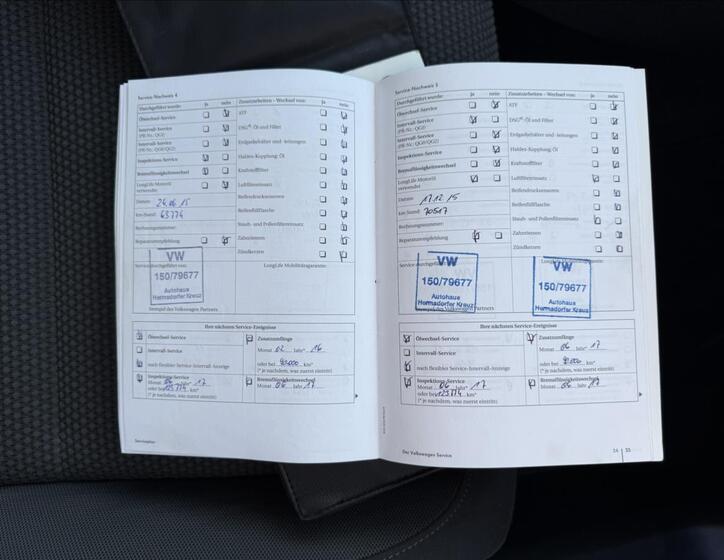 Service-Nachweis 4
Durchgeführt wurde: ja nein Zusatzarbeiten - Wechsel von: ja nein
Ölwechsel-Service ATF
Intervall-Service
(PR-Nr.: QG1) DSG®-Öl und Filter
Intervall-Service
(PR-Nr.: QG0/QG2) Erdgasbehälter und -leitungen
Inspektions-Service Haldex-Kupplung: Öl
Bremsflüssigkeitswechsel Kraftstofffilter
LongLife Motoröl
verwendet Luftfiltereinsatz
Datum: 24.06.15 Reifendrucksensoren
km-Stand: 63774 Reifenfüllflasche
Rechnungsnummer: Staub- und Pollenfiltereinsatz
Reparaturempfehlung Zahnriemen
Zündkerzen
Service durchgeführt von: LongLife Mobilitätsgarantie:
VW
150/79677
Autohaus
Hermsdorfer Kreuz
Stempel des Volkswagen Partners
Ihre nächsten Service-Ereignisse
Ölwechsel-Service Zusatzumfänge
Intervall-Service Monat 02 Jahr 16
nach flexibler Service-Intervall-Anzeige oder bei 90.000 km*
(* je nachdem, was zuerst eintritt)
Inspektions-Service Bremsflüssigkeitswechsel
Monat 06 Jahr 17 Monat 06 Jahr 17
oder bei 123774 km*
(* je nachdem, was zuerst eintritt)
Serviceplan
Service-Nachweis 5
Durchgeführt wurde: ja nein Zusatzarbeiten - Wechsel von: ja nein
Ölwechsel-Service ATF
Intervall-Service
(PR-Nr.: QG1) DSG®-Öl und Filter
Intervall-Service
(PR-Nr.: QG0/QG2) Erdgasbehälter und -leitungen
Inspektions-Service Haldex-Kupplung: Öl
Bremsflüssigkeitswechsel Kraftstofffilter
LongLife Motoröl
verwendet Luftfiltereinsatz
Datum: 17.12.15 Reifendrucksensoren
km-Stand: 70517 Reifenfüllflasche
Rechnungsnummer: Staub- und Pollenfiltereinsatz
Reparaturempfehlung Zahnriemen
Zündkerzen
Service durchgeführt von: LongLife Mobilitätsgarantie:
VW VW
150/79677 150/79677
Autohaus Autohaus
Hermsdorfer Kreuz Hermsdorfer Kreuz
Stempel des Volkswagen Partners
Ihre nächsten Service-Ereignisse
Ölwechsel-Service Zusatzumfänge
Intervall-Service Monat 06 Jahr 17
nach flexibler Service-Intervall-Anzeige oder bei 90.000 km*
(* je nachdem, was zuerst eintritt)
Inspektions-Service Bremsflüssigkeitswechsel
Monat 06 Jahr 17 Monat 06 Jahr 17
oder bei 123774 km*
(* je nachdem, was zuerst eintritt)
Der Volkswagen Service